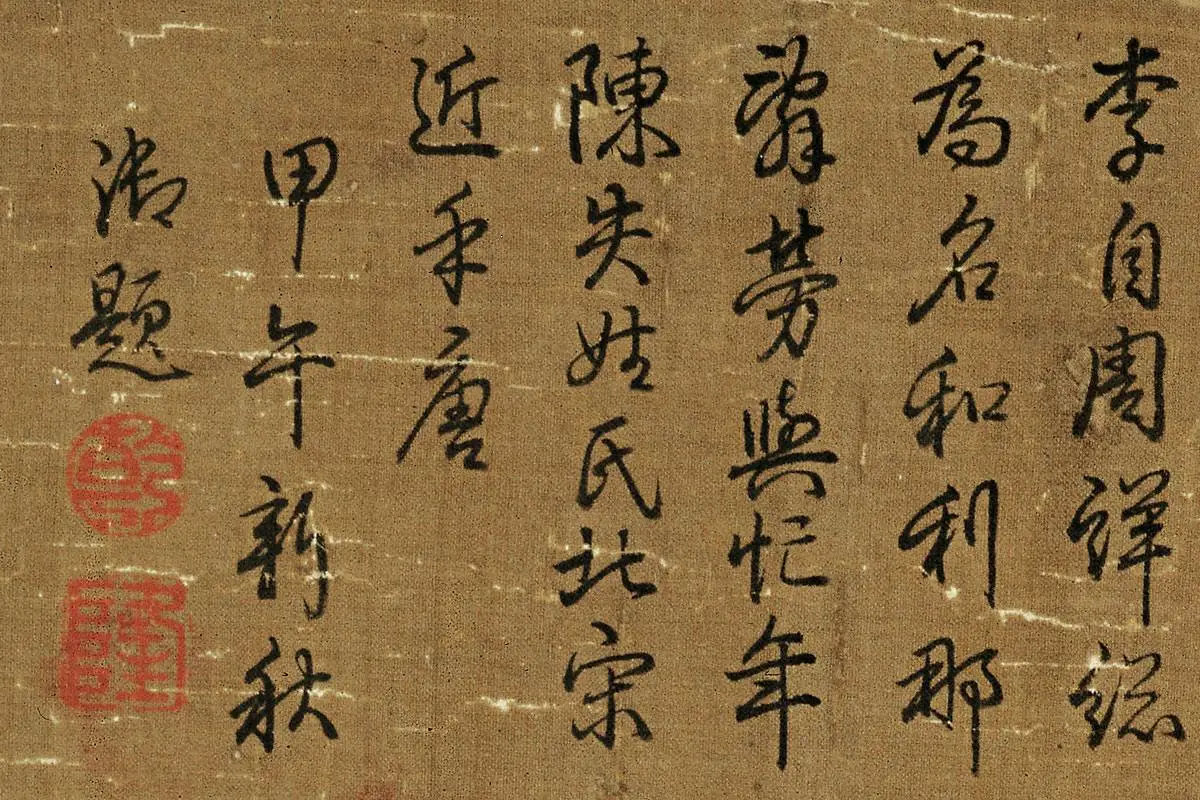 李自周詳總
為名和利那
辭勞與忙年
陳失姓氏北宋
近乎唐
甲午新秋
御題
乾
隆